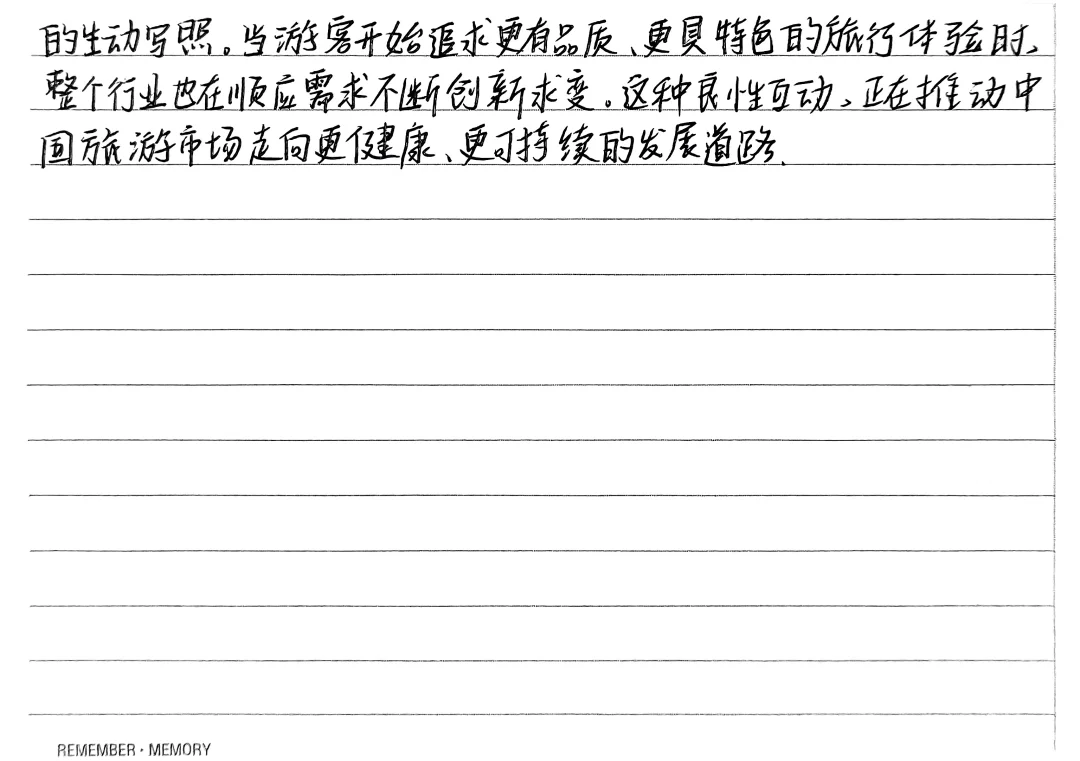 的生动写照。当游客开始追求更有品质、更具特色的旅行体验时，
整个行业也在顺应需求不断创新求变。这种良性互动，正在推动中
国旅游市场走向更健康、更可持续的发展道路.
REMEMBER · MEMORY